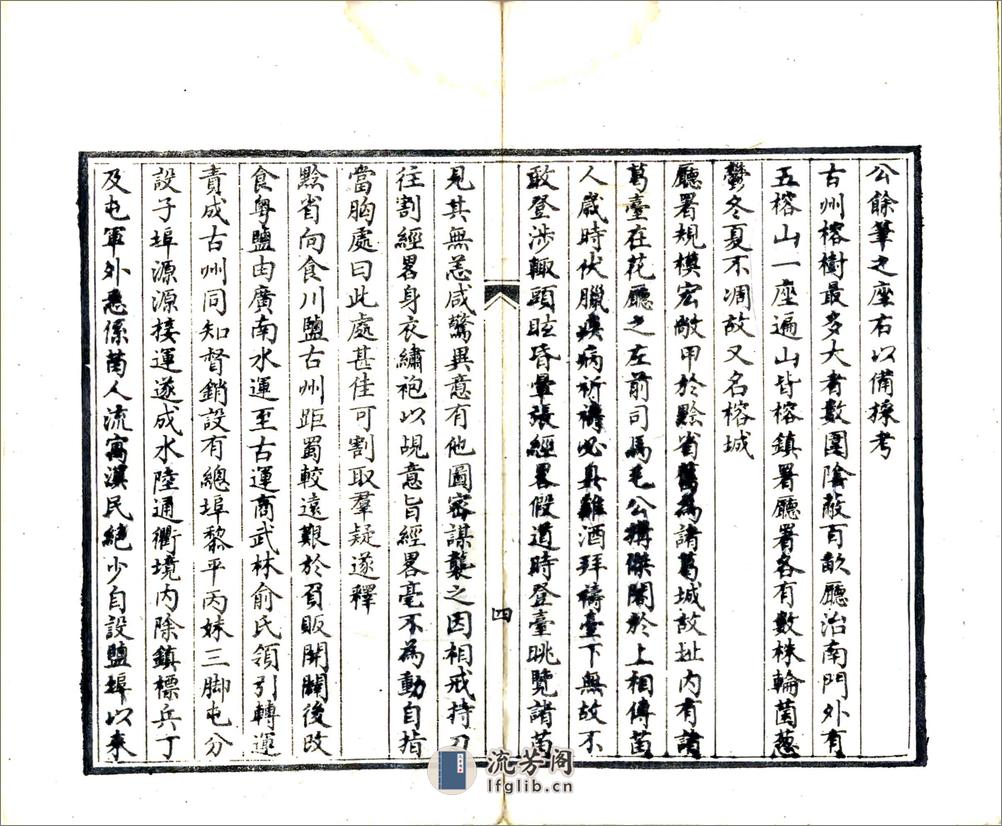 公餘筆之座右以備採考
古州榕樹最多大者數圍陰蔽百畝廳治南門外有
五榕山一座遍山皆榕鎮署廳署各有數株輪菌葱
鬱冬夏不凋故又名榕城
廳署規模宏敞甲於黔省舊為諸葛城故址內有諸
葛臺在花廳之左前司馬毛公搆傑閣於上相傳苗
人歲時伏臘疾病祈禱必具雞酒拜禱臺下無故不
敢登涉輙頭眩昏暈張經畧假道時登臺眺覽諸苗
見其無恙咸驚異意有他圖密謀襲之因相戒持刀
往割經畧身衣繡袍以覘意旨經畧毫不為動自指
當胸處曰此處甚佳可割取羣疑遂釋
黔省向食川鹽古州距蜀較遠艱於負販開闢後改
食粵鹽由廣南水運至古運商武林俞氏領引轉運
責成古州同知督銷設有總埠黎平丙妹三脚屯分
設子埠源源接運遂成水陸通衢境內除鎮標兵丁
及屯軍外悉係苗人流寓漢民絕少自設鹽埠以來
四
流芳阁
lfglib.cn